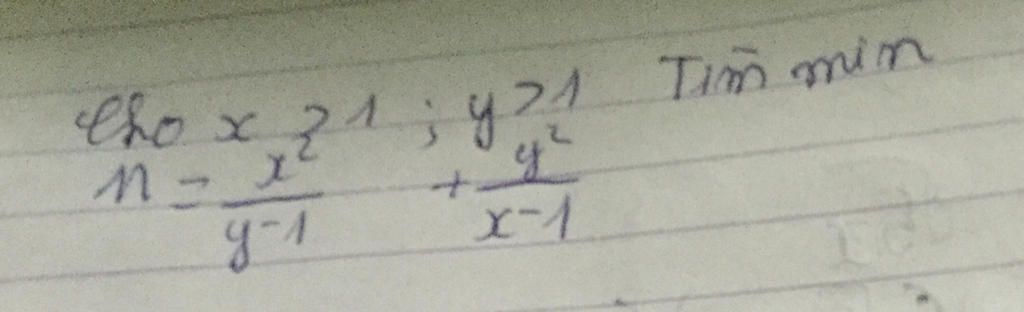 Cho x > 1 ; y > 1 Tìm min
M = \frac{x^2}{y-1} + \frac{y^2}{x-1}